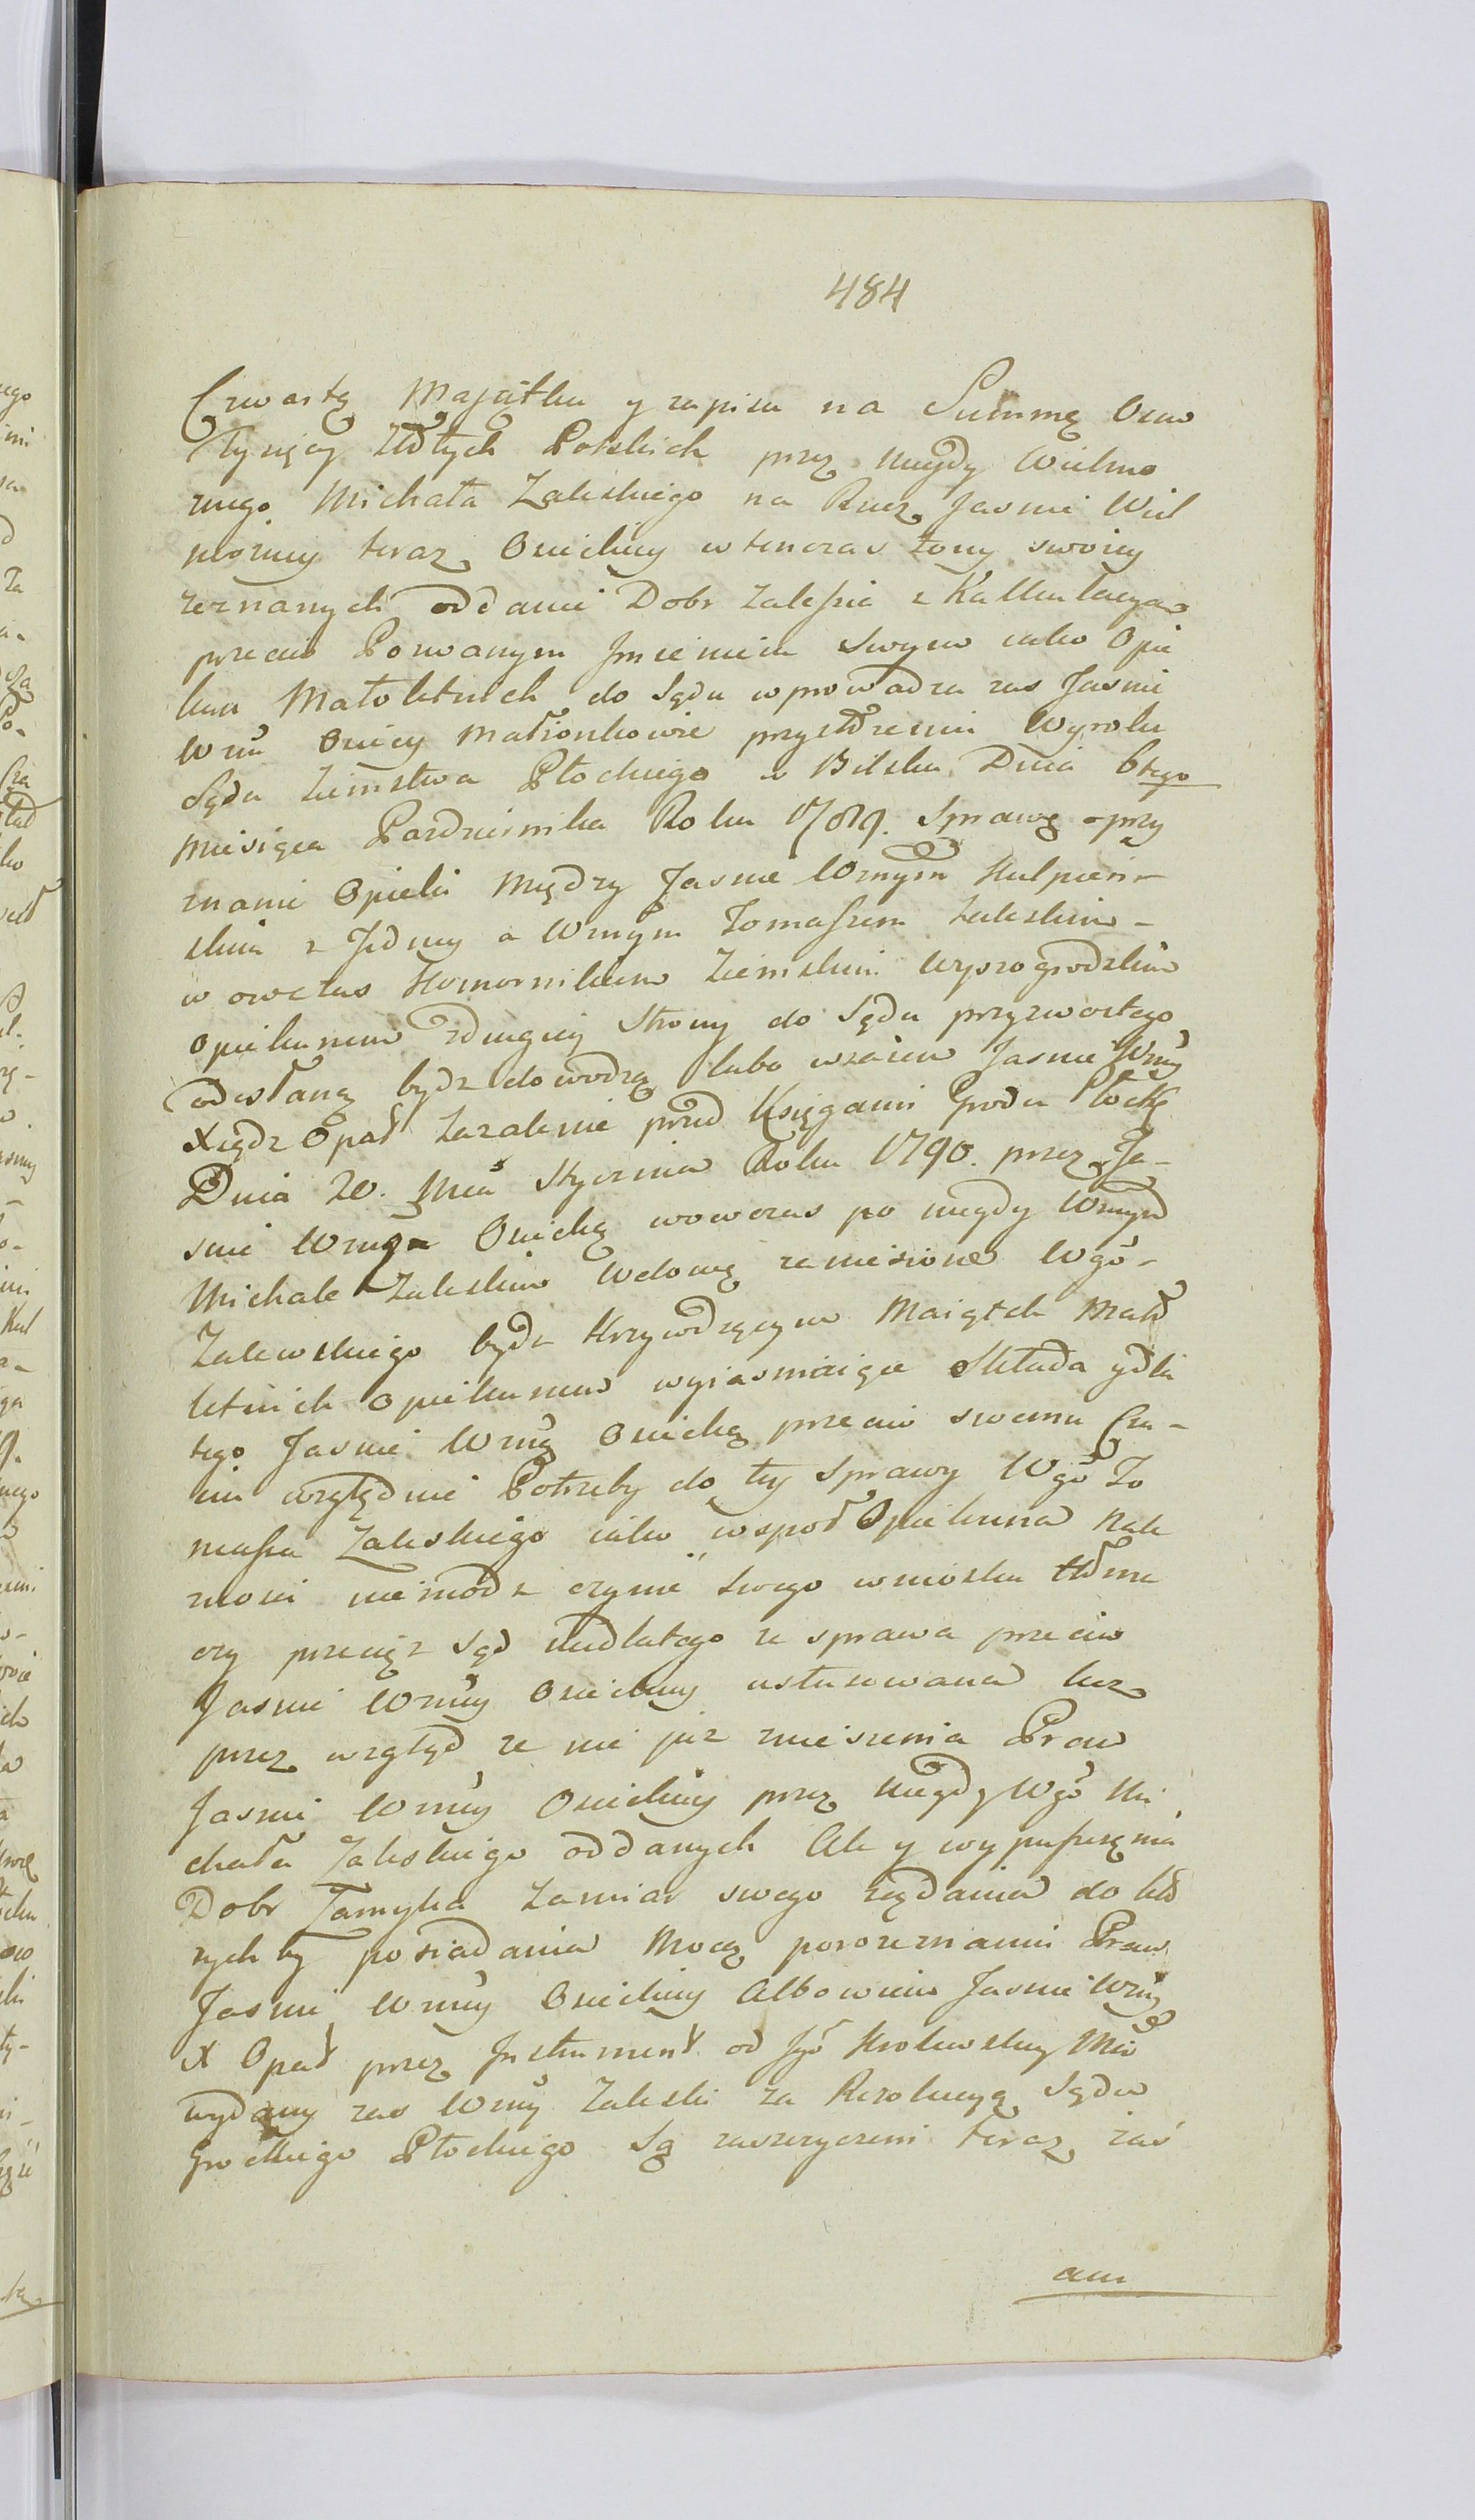 484
Czwartą Majątku y zapisu na Summę Ośm
Tysięcy Złłtych Polskich przez niegdy Wielmo
żnego Michała Zaleskiego na Rzecz Jasnie Wiel
możney teraz Osieckiey wtenczas żony swoiey
zeznanych oddanie Dobr Zalesia z Kalkulacyą
przeciw Pozwanym Imieniem swym iako Opie
kun Małoletnich do Sądu wprowadza zas Jasnie
Wni Osieccy Małżonkowie przystrzeżeni Wyroku
Sądu Ziemstwa Płockiego w Bilsku Dnia 6tego
Miesiąca Pazdziernika Roku 1789. Sprawę oprzy
znanie Opieki między Jasnie Wnym Kulpieńs
kim z Jedney a Wnym Tomaszem Zaleskim
w owczas Komornikiem Ziemskim Wyszogrodzkim
Opiekunem zdrugiey Strony do Sądu przyzwoitego
odesłaną bydz dowodzą lubo wzaiem Jasnie Wny
Xiądz Opat Zażalenie przed Xięgami Grodu Płockᵒ
Dnia 20. Mca Stycznia Roku 1790. przez Ja-
snie Wną Osiecką wowczas po niegdy Wnym
Michale Zaleskim Wdowę zaniesione Wgo
Zalewskiego bydz Krzywdzącym Maiątek Mało
letnich Opiekunem wyiasniaiące Składa y dla
tego Jasnie Wną Osiecką przeciw swemu Czy-
nu względnie Potrzeby do tey Sprawy Wgo To
masza Zaleskiego iako wspoł Opiekuna Nale
żności niemodz czynić swego wniosku tłóma
czy przeciąż Sąd niedlatego że sprawa przeciw
Jasnie Wney Osieckiey ustosowana lecz
przez wzgląd że nie już zniesienia Praw
Jasnie Wney Osieckiey przez niegdy Wgo Mi
chała Zaleskiego oddanych Ale y wypuszczenia
Dobr Zamyka Zamiar swego żądania do któ
rych by posiadania Mocą porożnianiu Praw
Jasnie Wney Osieckiey Albowiem Jasnie Wny
X Opat przez Instrument od Jgo Krolewskiey Mci
wydany zas Wny Zaleski za Rezolucyą Sądu
Grodzkiego Płockiego są zaszczyceni teraz zaś
ani